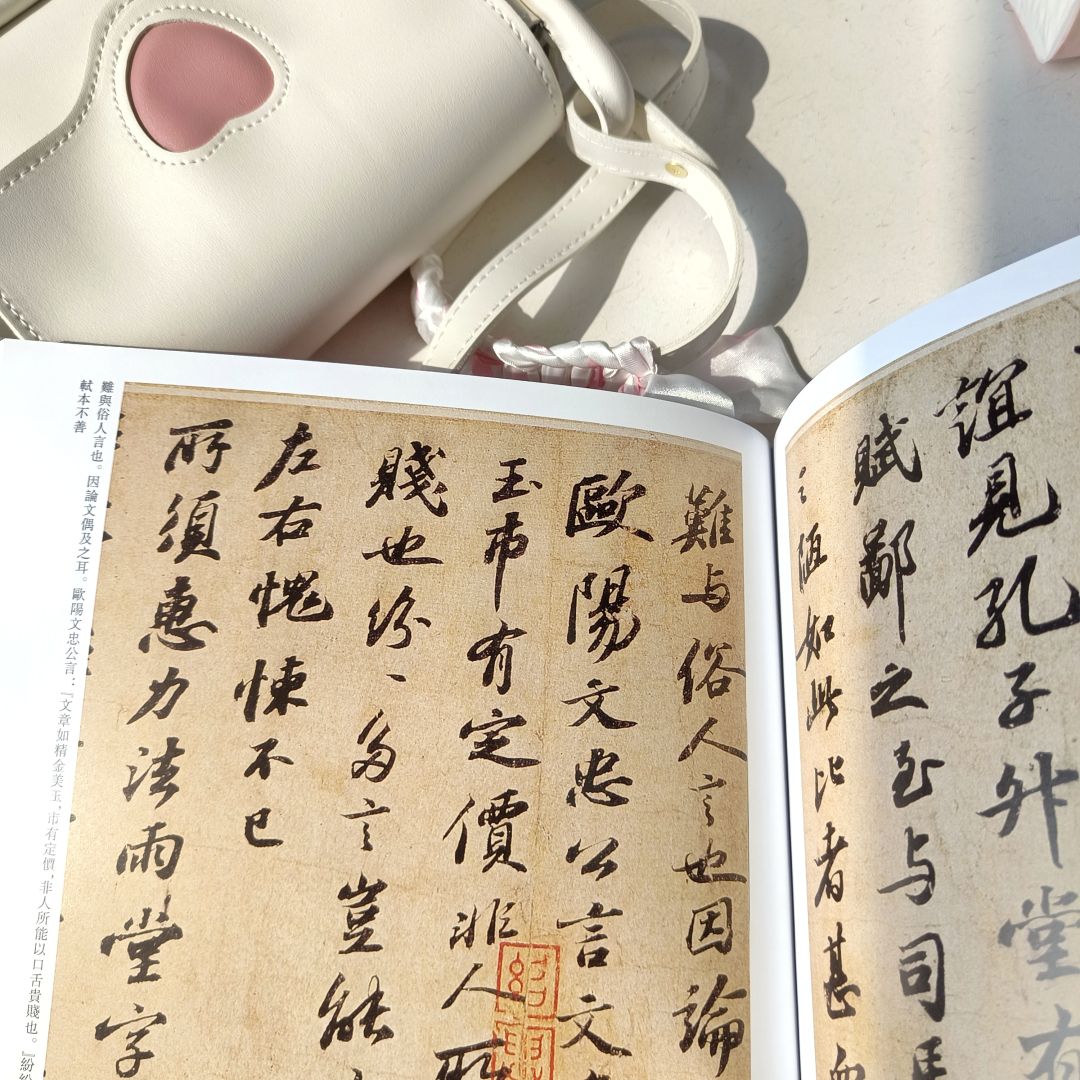 誼見孔子升堂有
賦鄙之至与司
之陋如此比者甚
難与俗人言也因論
歐陽文忠公言文
玉市有定價非人所
賤也紛、多言豈能
左右愧悚不已
所須惠力法雨堂字
難與俗人言也。因論文偶及之耳。歐陽文忠公言：『文章如精金美玉，市有定價，非人所能以口舌貴賤也。』紛
軾本不善